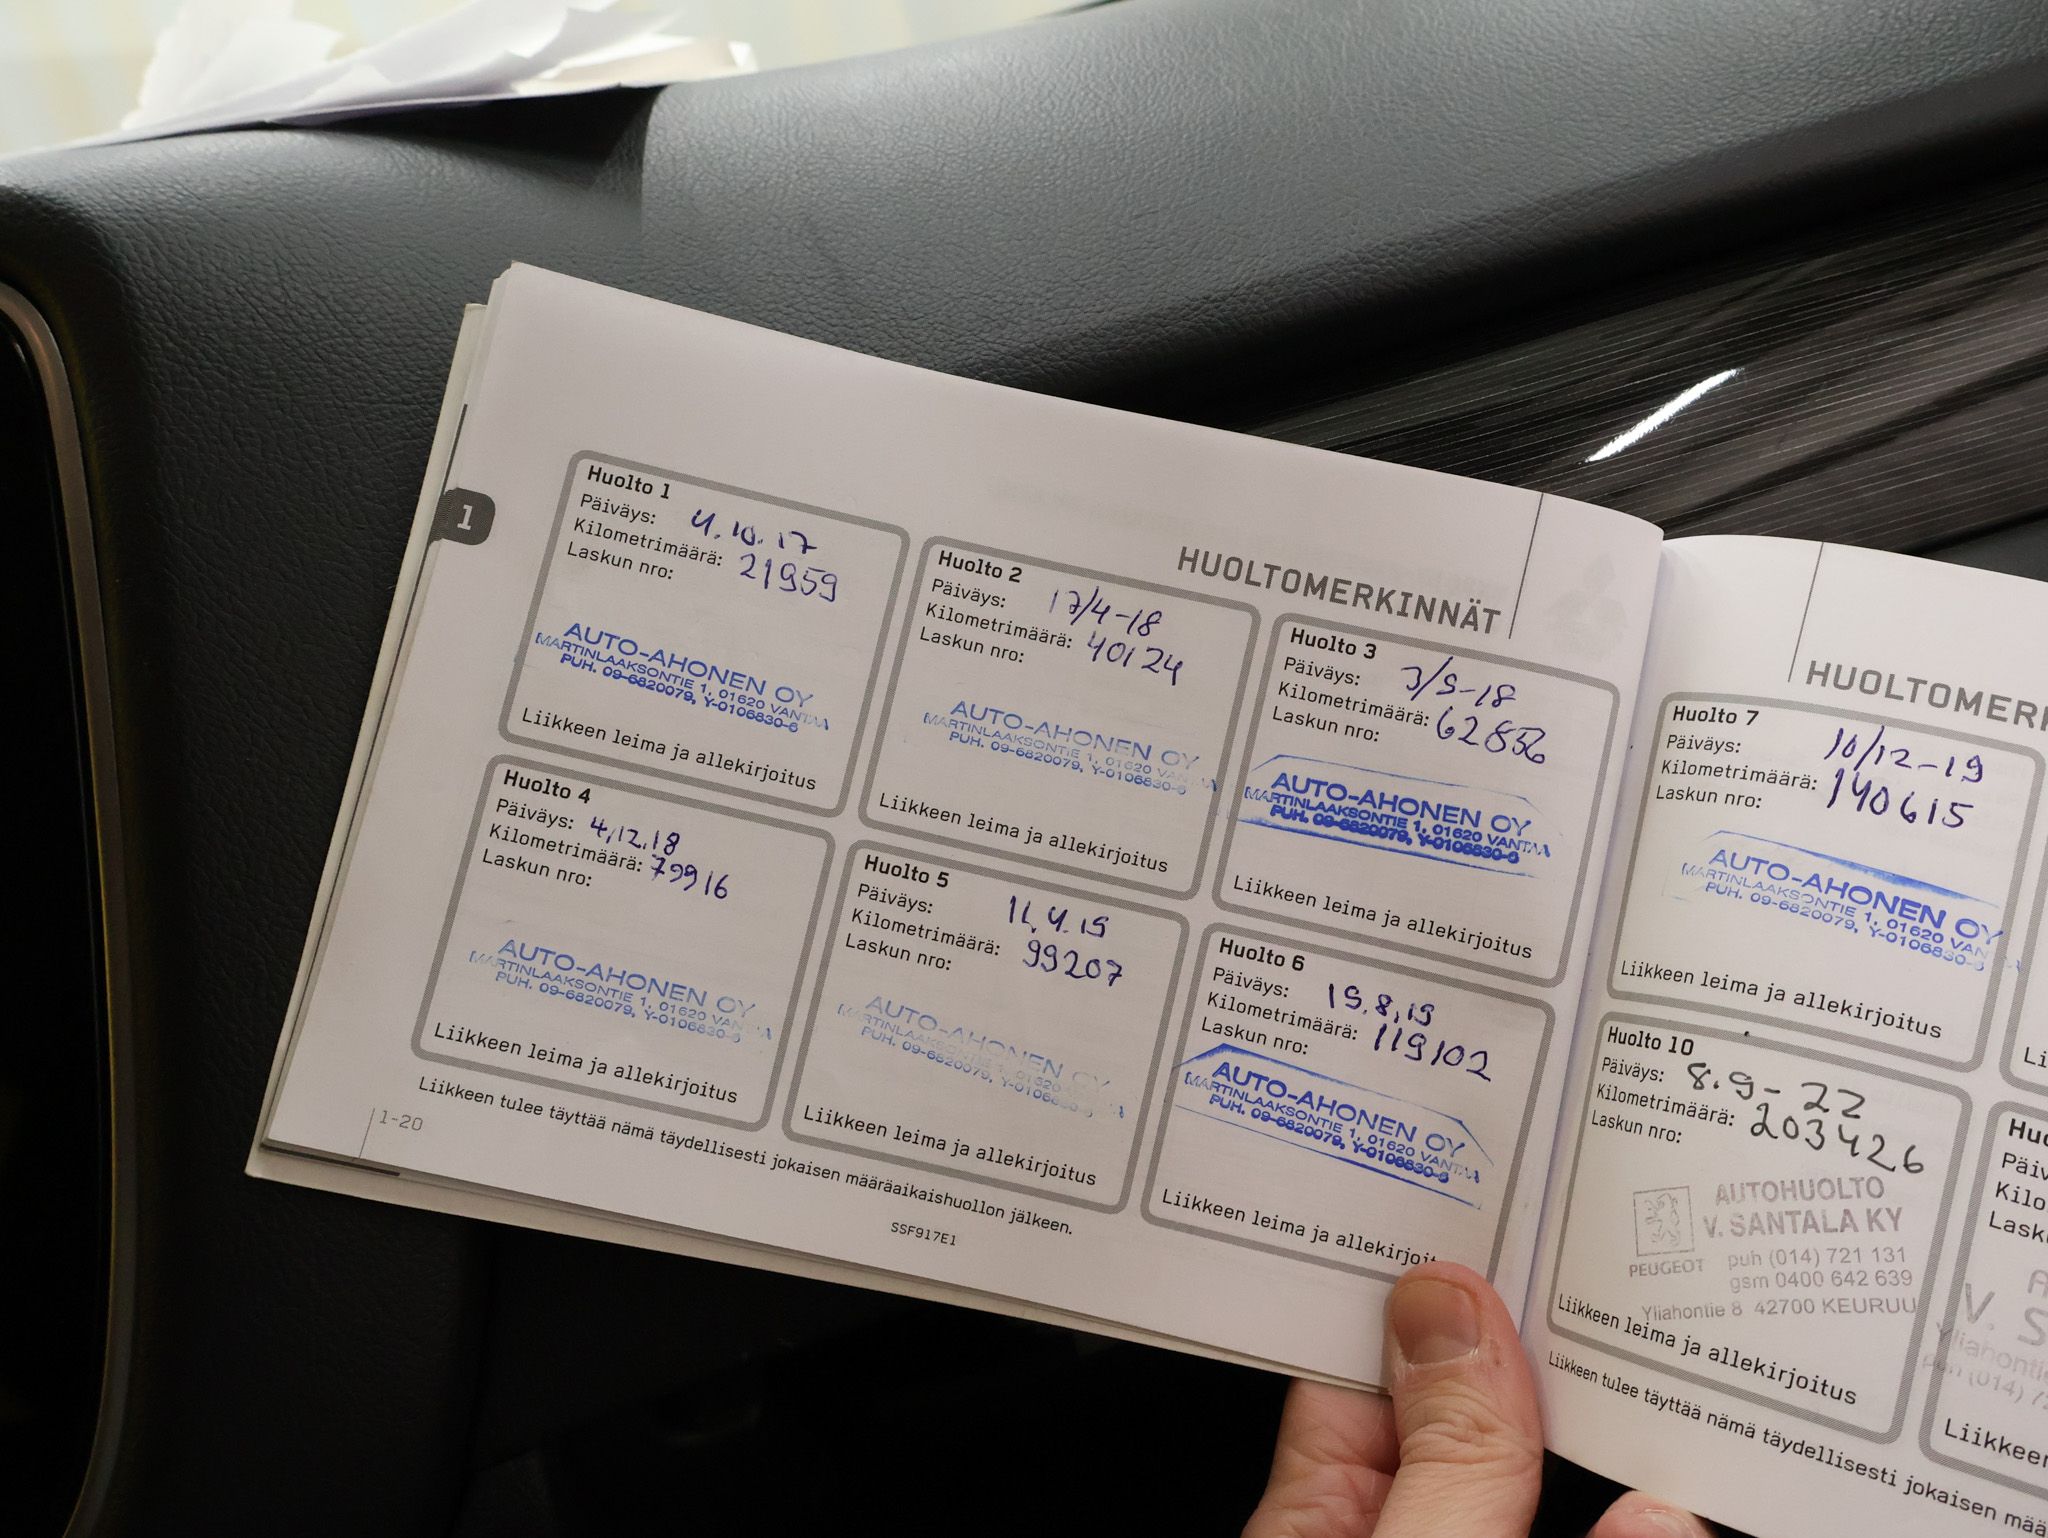 1
HUOLTOMERKINNÄT
Huolto 1
Päiväys: 4.10.17
Kilometrimäärä: 21959
Laskun nro:
AUTO-AHONEN OY
MARTINLAAKSONTIE 1, 01620 VANTAA
PUH. 09-6820079, Y-0106830-6
Liikkeen leima ja allekirjoitus
Huolto 2
Päiväys: 17/4-18
Kilometrimäärä: 40124
Laskun nro:
AUTO-AHONEN OY
MARTINLAAKSONTIE 1, 01620 VANTAA
PUH. 09-6820079, Y-0106830-6
Liikkeen leima ja allekirjoitus
Huolto 3
Päiväys: 3/9-18
Kilometrimäärä: 62856
Laskun nro:
AUTO-AHONEN OY
MARTINLAAKSONTIE 1, 01620 VANTAA
PUH. 09-6820079, Y-0106830-6
Liikkeen leima ja allekirjoitus
Huolto 4
Päiväys: 4.12.18
Kilometrimäärä: 79916
Laskun nro:
AUTO-AHONEN OY
MARTINLAAKSONTIE 1, 01620 VANTAA
PUH. 09-6820079, Y-0106830-6
Liikkeen leima ja allekirjoitus
Huolto 5
Päiväys: 11.4.19
Kilometrimäärä: 99207
Laskun nro:
AUTO-AHONEN OY
MARTINLAAKSONTIE 1, 01620 VANTAA
PUH. 09-6820079, Y-0106830-6
Liikkeen leima ja allekirjoitus
Huolto 6
Päiväys: 19.8.19
Kilometrimäärä: 119102
Laskun nro:
AUTO-AHONEN OY
MARTINLAAKSONTIE 1, 01620 VANTAA
PUH. 09-6820079, Y-0106830-6
Liikkeen leima ja allekirjoit
Liikkeen tulee täyttää nämä täydellisesti jokaisen määräaikaishuollon jälkeen.
1-20
SSF917E1
HUOLTOMER
Huolto 7
Päiväys: 10/12-19
Kilometrimäärä: 140615
Laskun nro:
AUTO-AHONEN OY
MARTINLAAKSONTIE 1, 01620 VANTAA
PUH. 09-6820079, Y-0106830-6
Liikkeen leima ja allekirjoitus
Huolto 10
Päiväys: 8.9-22
Kilometrimäärä: 203426
Laskun nro:
AUTOHUOLTO
V. SANTALA KY
PEUGEOT
puh (014) 721 131
gsm 0400 642 639
Yliahontie 8 42700 KEURUU
Liikkeen leima ja allekirjoitus
Päiv
Kilo
Lask
Liikkeen
Liikkeen tulee täyttää nämä täydellisesti jokaisen mää